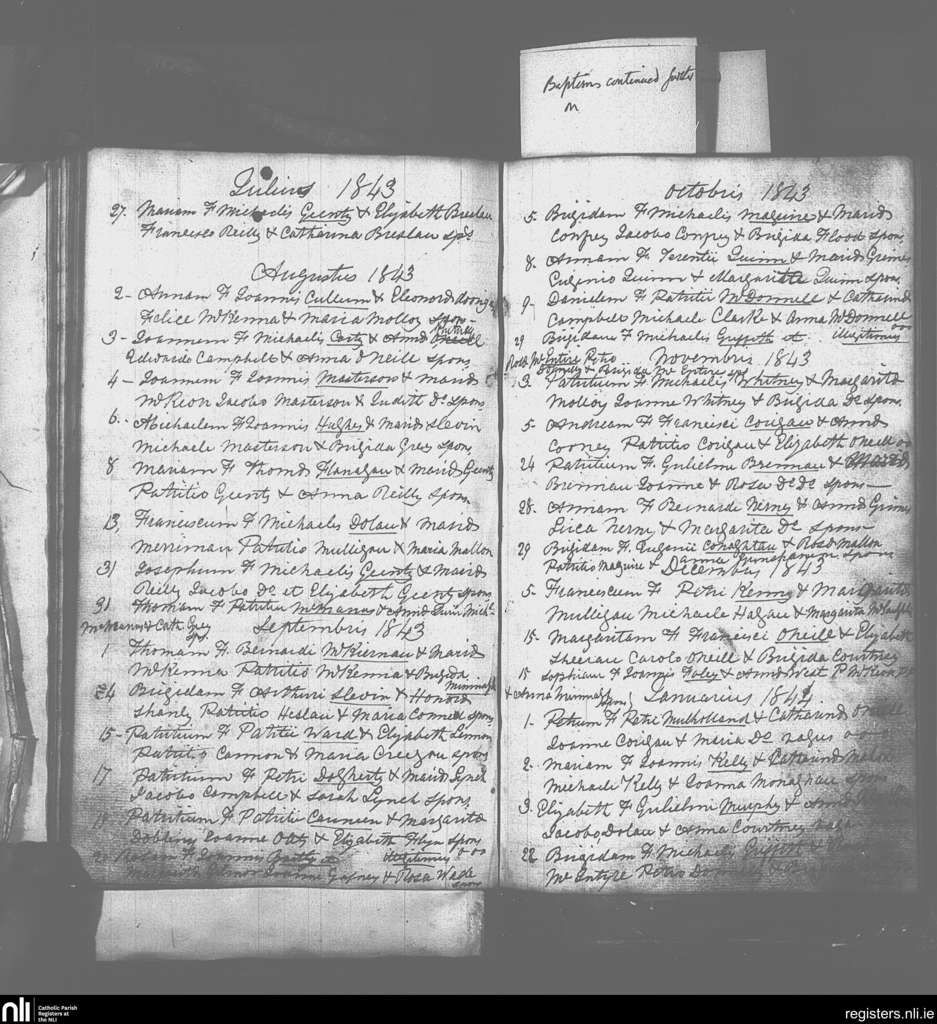 Baptisms continued further
on
Julius 1843
27. Mariam F Michaelis Geenty & Elizabeth Breslau
Francisco Reilly & Catharina Breslau sps
Augustus 1843
2 - Annam F Joannis Cullum & Eleonora
Felice McKenna & Maria Molloy spon
3 - Joannem F Michaelis Carty & Anna
Edwardo Campbell & Anna O Neill spons
4 - Joannem F Joannis Masterson & Maria
McKeon Jacobo Masterson & Judith Do spons
6. Michaelem F Joannis Hughes & Maria Slevin
Michaele Masterson & Brigida Grey spons
8 Mariam F Thoma Flanagan & Maria Geenty
Patritio Geenty & Anna Reilly spons
13, Franciscum F Michaelis Dolan & Maria
Merriman Patritio Mulligan & Maria Mallon
31 Josephum F Michaelis Geenty & Maria
Reilly Jacobo Do et Elizabeth Geenty spons
31 Thomam F Patritii McManus & Anna Michl
McManus & Cath Grey
sps.
Septembris 1843
1 Thomam F Bernardi McKiernan & Maria
McKenna Patritio McKenna & Brigida
Minimagh
24 Brigidam F Arthuri Slevin & Honora
Shanly Patritio Heslan & Maria Connell spons
15 - Patritium F Patritii Ward & Elizabeth Lennon
Patritio Cannon & Maria Creegan spons
17 Patritium F Petri Dogherty & Maria Lynch
Jacobo Campbell & Sarah Lynch spons,
Patritium F Patritii & Margarita
Joanne & Elizabeth Flyn spons
F Joannis illegitimus
Joanne Gafney & Rosa Wade
spons
Octobris 1843
5. Brigidam F Michaelis Maguire & Maria
Confrey Jacobo Confrey & Brigida Flood spons,
8. Annam F Terentii Quinn & Maria Grimes
Eugenio Quinn & Margarita Quinn spons
9 - Danielem F Patritii McDonnell & Catharina
Campbell Michaele Clarke & Anna McDonnell
29 Brigidam F Michaelis Griffith et illegitimus
Rosa McEntire Petro
Donnelly & Brigida McEntire sps
Novembris 1843
3. Patritium F Michaelis Whitney & Margarita
Molloy Joanne Whitney & Brigida Do spons,
5. Andream F Francisci Corigan & Anna
Cooney Patritio Corigan & Elizabeth ONeill
24 Patritium F. Gulielmi Brennan & Maria
Brennan Joanne & Rosa Do Do spons
28. Annam F Bernardi Nerny & Anna Grimes
Luca Nerny & Margarita Do spons
29 Brigidam F. Eugenii Conaghtan & Rosa Mallon
Patritio Maguire & spons
Decembris 1843
5 - Franciscum F Petri Kenny & Margarita
Mulligan Michaele & Margarita
15. Margaritam F Francisci ONeill & Elizabeth
Sheeran Carolo ONeill & Brigida Courtney
15 Sophiam F Joannis Foley & Anna West P. McKeon
& Anna Minimagh
spons
Januarius 1844
1 - Petrum F Petri Mulholland & Catharina
Joanne Corigan & Maria Do
2. Mariam F Joannis Kelly & Catharina
Michaele Kelly & Joanna Monaghan spons
3. Elizabeth F Gulielmi Murphy & Anna
Jacobo Dolan & Anna Courtney
22 Brigidam F Michaelis Griffith &
McEntyre Petro Donnelly &
nli
Catholic Parish
Registers at
the NLI
registers.nli.ie